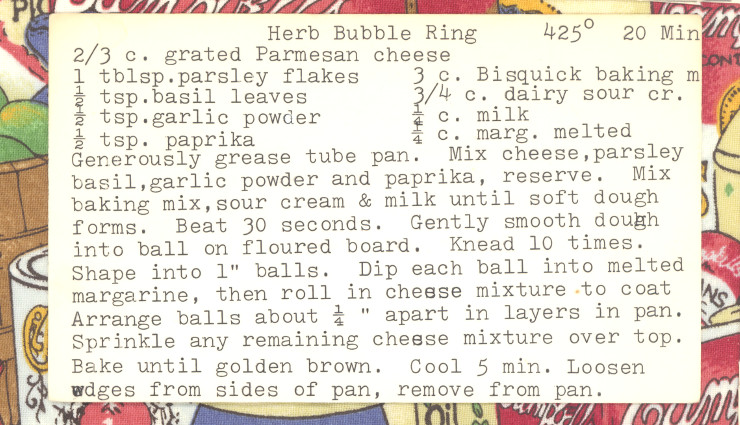 Herb Bubble Ring 425° 20 Min
2/3 c. grated Parmesan cheese
1 tblsp.parsley flakes 3 c. Bisquick baking m
½ tsp.basil leaves 3/4 c. dairy sour cr.
½ tsp.garlic powder ¼ c. milk
½ tsp. paprika ¼ c. marg. melted
Generously grease tube pan. Mix cheese,parsley
basil,garlic powder and paprika, reserve. Mix
baking mix,sour cream & milk until soft dough
forms. Beat 30 seconds. Gently smooth dough
into ball on floured board. Knead 10 times.
Shape into 1" balls. Dip each ball into melted
margarine, then roll in cheese mixture to coat
Arrange balls about ¼ " apart in layers in pan.
Sprinkle any remaining cheese mixture over top.
Bake until golden brown. Cool 5 min. Loosen
edges from sides of pan, remove from pan.
Oil